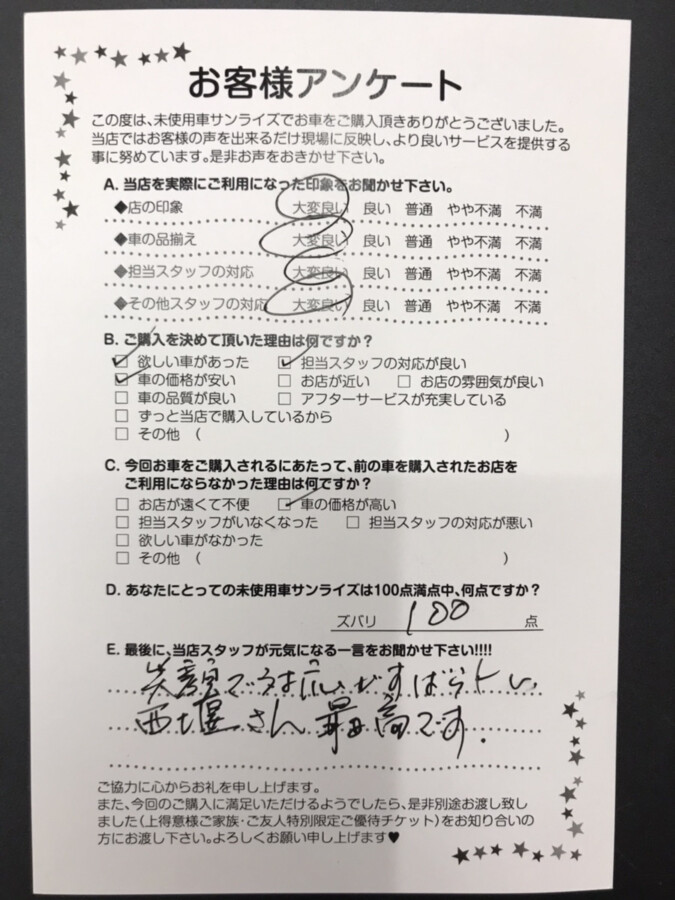 お客様アンケート
この度は、未使用車サンライズでお車をご購入頂きありがとうございました。
当店ではお客様の声を出来るだけ現場に反映し、より良いサービスを提供する
事に努めています。是非お声をおきかせ下さい。
A. 当店を実際にご利用になった印象をお聞かせ下さい。
◆店の印象 大変良い 良い 普通 やや不満 不満
◆車の品揃え 大変良い 良い 普通 やや不満 不満
◆担当スタッフの対応 大変良い 良い 普通 やや不満 不満
◆その他スタッフの対応 大変良い 良い 普通 やや不満 不満
B. ご購入を決めて頂いた理由は何ですか?
☑ 欲しい車があった ☑ 担当スタッフの対応が良い
☑ 車の価格が安い □ お店が近い □ お店の雰囲気が良い
□ 車の品質が良い □ アフターサービスが充実している
□ ずっと当店で購入しているから
□ その他 ( )
C. 今回お車をご購入されるにあたって、前の車を購入されたお店を
ご利用にならなかった理由は何ですか?
□ お店が遠くて不便 ☑ 車の価格が高い
□ 担当スタッフがいなくなった □ 担当スタッフの対応が悪い
□ 欲しい車がなかった
□ その他 ( )
D. あなたにとっての未使用車サンライズは100点満点中、何点ですか?
ズバリ 100 点
E. 最後に、当店スタッフが元気になる一言をお聞かせ下さい!!!!
笑顔で対応がすばらしい、
西堰さん最高です.
ご協力に心からお礼を申し上げます。
また、今回のご購入に満足いただけるようでしたら、是非別途お渡し致し
ました(上得意様ご家族・ご友人特別限定ご優待チケット)をお知り合いの
方にお渡し下さい。よろしくお願い申し上げます♥